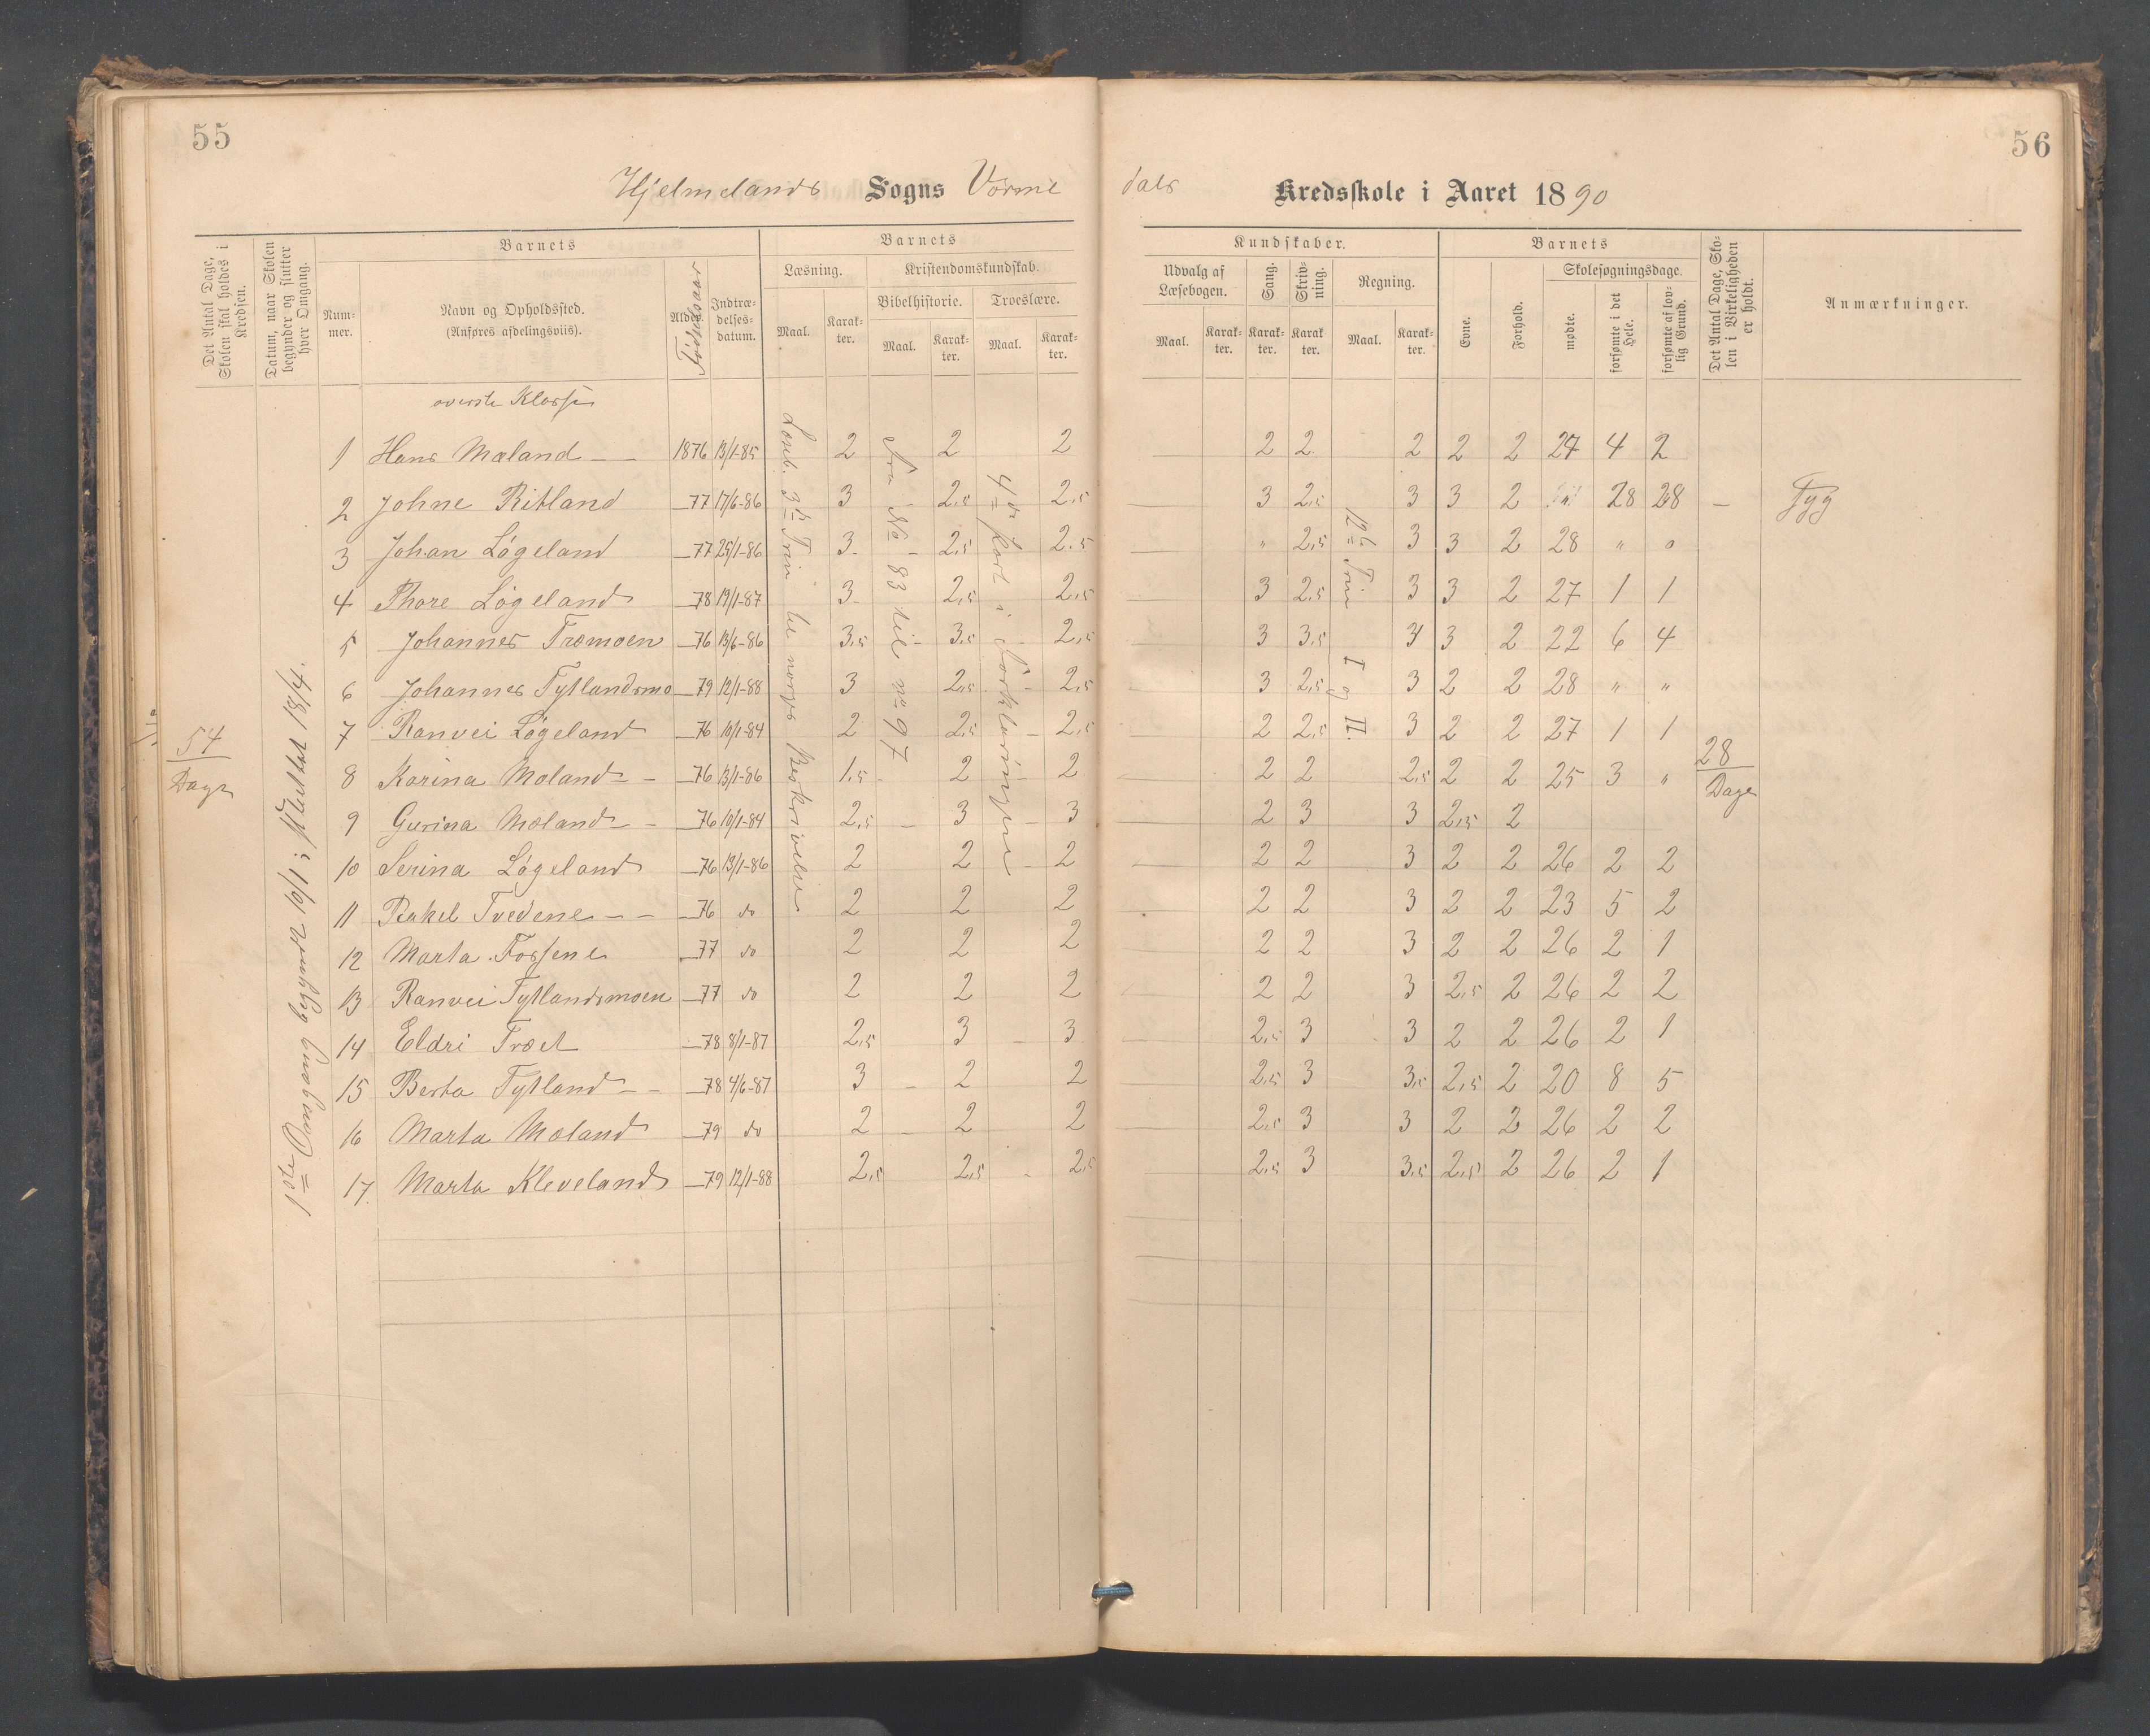 55
56
Hjelmelands Sogns Vorme
dals Kredsskole i Aaret 1890
Det Antal Dage, Skolen skal holdes i Kredsen.
Datum, naar Skolen begynder og slutter hver Omgang.
Barnets
Nummer.
Navn og Opholdssted.
(Anføres afdelingsviis).
Alder. Fødselsaar
Indtrædelses-datum.
Barnets
Læsning.
Maal. Karakter.
Kristendomskundskab.
Bibelhistorie. Troeslære.
Maal. Karakter. Maal. Karakter.
Kundskaber.
Udvalg af Læsebogen.
Maal. Karakter.
Sang. Karakter.
Skrivning. Karakter
Regning.
Maal. Karakter.
Barnets
Evne. Forhold.
Skolesøgningsdage.
mødte. forsømte i det Hele. forsømte af lovlig Grund.
Det Antal Dage, Skolen i Virkeligheden er holdt.
Anmærkninger.
54
Dage
1ste Omgang begyndt 10/1; sluttet 18/4.
øverste Klasse
Fra No 83 til no 97
4de Part i Forklaringen
12te Trin I og II.
28
Dage
1 Hans Mæland 1876 13/1-85 2 2 2 2 2 2 2 2 24 4 2
2 Johne Ritland 77 17/6-86 3 2,5 2,5 3 2,5 3 3 2 28 28 – Syg
3 Johan Løgeland 77 25/1-86 3 2,5 2,5 " 2,5 3 3 2 28 " o
4 Thore Løgeland 78 19/1-87 3 2,5 2,5 3 2,5 3 3 2 27 1 1
5 Johannes Træmoen 76 13/6-86 3,5 3,5 2,5 3 3,5 3 3 2 22 6 4
6 Johannes Tytlandsmo 79 12/1-88 3 2,5 2,5 3 2,5 3 2 2 28 " "
7 Ranvei Løgeland 76 10/1-84 2 2,5 2,5 2 2,5 3 2 2 27 1 1
8 Karina Mæland 76 13/1-86 1,5 2 2 2 2 2,5 2 2 25 3 "
9 Gurina Mæland 76 10/1-84 2,5 3 3 2 3 3 2,5 2
10 Serina Løgeland 76 13/1-86 2 2 2 2 2 3 2 2 26 2 2
11 Rakel Tvedene 76 do 2 2 2 2 2 3 2 2 23 5 2
12 Marta Fossene 77 do 2 2 2 2 2 3 2 2 26 2 1
13 Ranvei Tytlandsmoen 77 do 2 2 2 2 2 3 2,5 2 26 2 2
14 Eldri Træet 78 8/1-87 2,5 3 3 2,5 3 3 2 2 26 2 1
15 Berta Tytland 78 4/6-87 3 2 2 2,5 3 3,5 2,5 2 20 8 5
16 Marta Mæland 79 do 2 2 2 2,5 3 3 2 2 26 2 2
17. Marta Kleveland 79 12/1-88 2,5 2,5 2,5 2,5 3 3,5 2,5 2 26 2 1